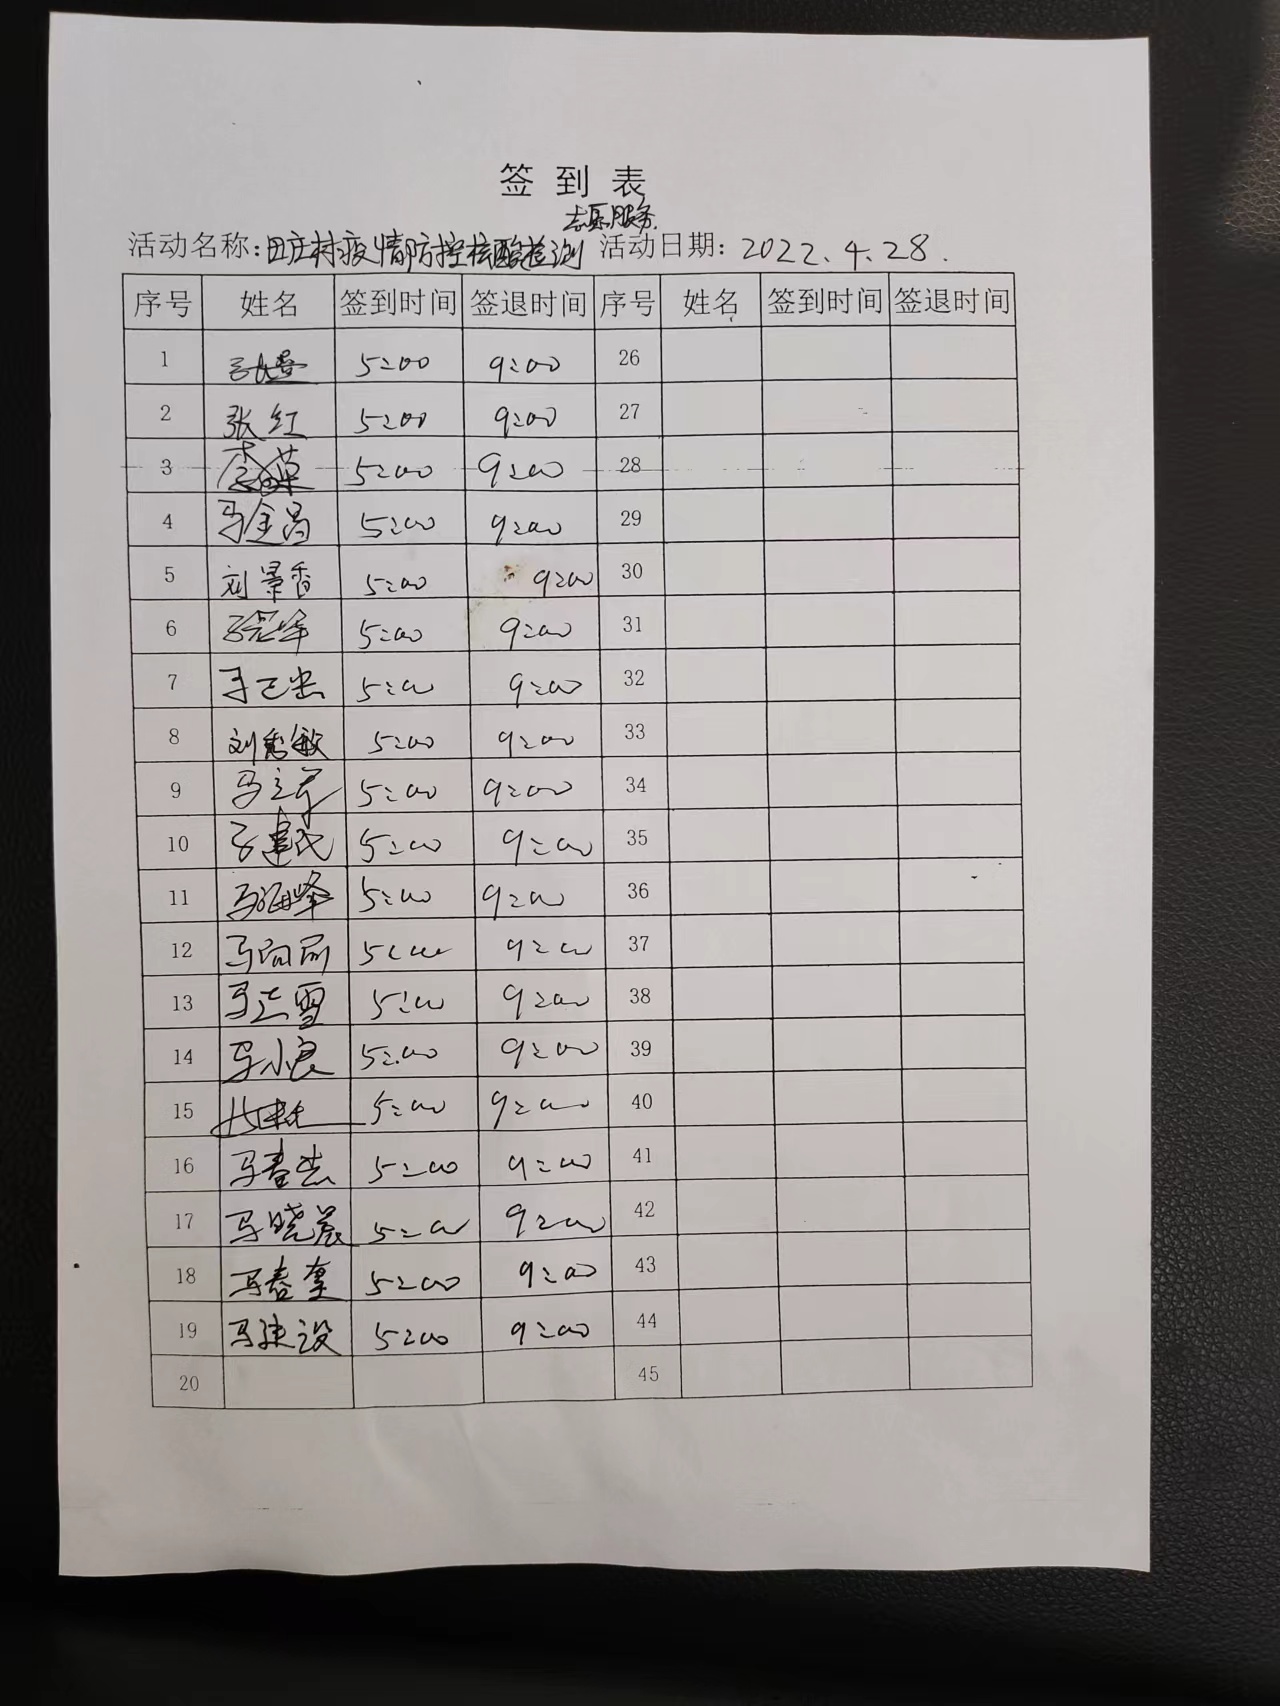 签到表
志愿服务
活动名称:田庄村疫情防控核酸检测 活动日期:2022.4.28.
序号 姓名 签到时间 签退时间 序号 姓名 签到时间 签退时间
1 5:00 9:00 26
2 张红 5:00 9:00 27
3 5:00 9:00 28
4 马金昌 5:00 9:00 29
5 刘景香 5:00 9:00 30
6 5:00 9:00 31
7 5:00 9:00 32
8 刘秀敏 5:00 9:00 33
9 马立军 5:00 9:00 34
10 马建民 5:00 9:00 35
11 马海峰 5:00 9:00 36
12 5:00 9:00 37
13 马志雪 5:00 9:00 38
14 马小良 5:00 9:00 39
15 5:00 9:00 40
16 马春杰 5:00 9:00 41
17 马晓晨 5:00 9:00 42
18 5:00 9:00 43
19 马建设 5:00 9:00 44
20 45